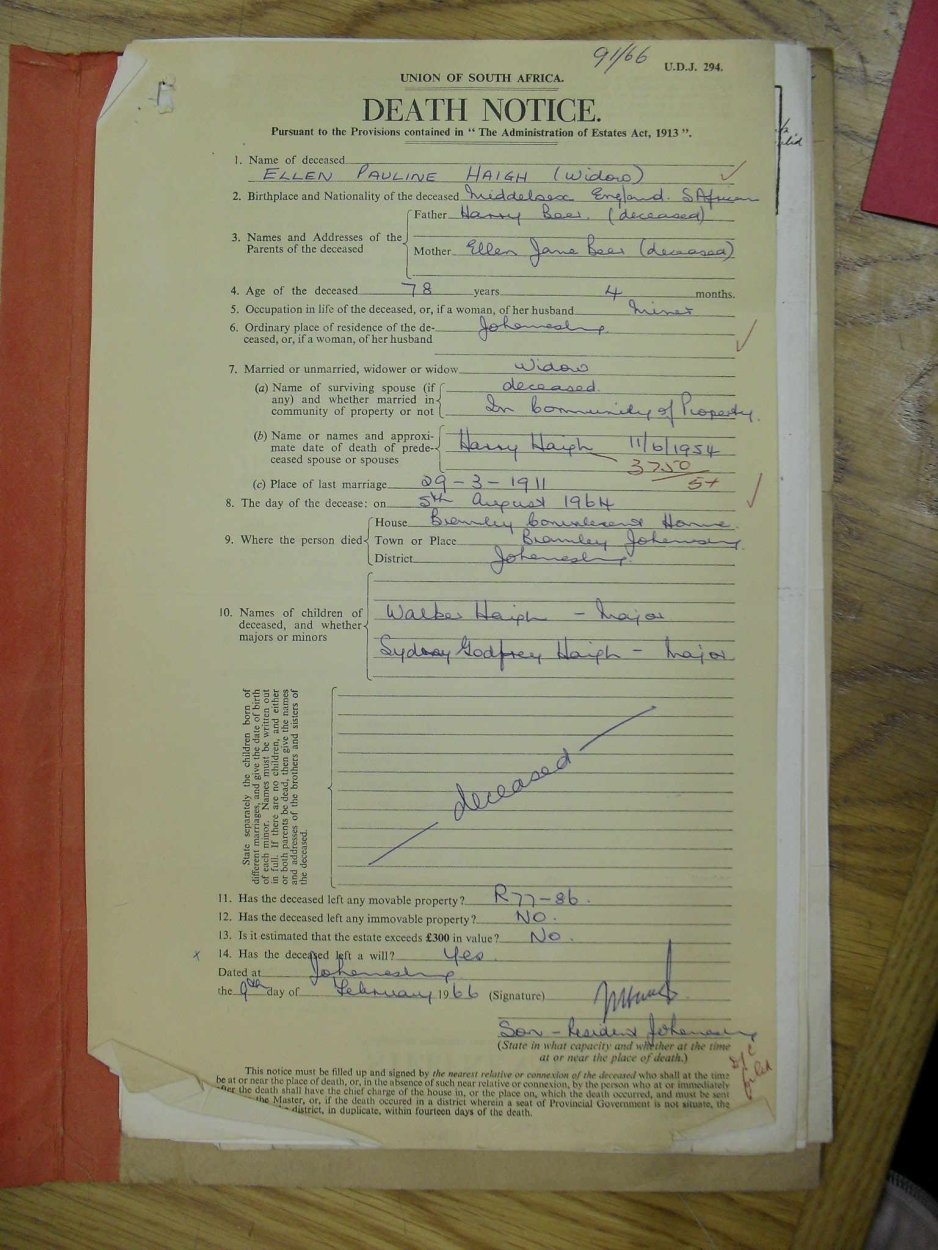 91/66
U.D.J. 294.
UNION OF SOUTH AFRICA.
DEATH NOTICE.
Pursuant to the Provisions contained in “ The Administration of Estates Act, 1913 ”.
1. Name of deceased
ELLEN PAULINE HAIGH (Widow)
2. Birthplace and Nationality of the deceased Middelsex England. SAfrican
3. Names and Addresses of the Parents of the deceased
Father Harry Beer. (deceased)
Mother Ellen Jane Beer (deceased)
4. Age of the deceased 78 years 4 months.
5. Occupation in life of the deceased, or, if a woman, of her husband Miner
6. Ordinary place of residence of the de-
ceased, or, if a woman, of her husband
Johannesburg
7. Married or unmarried, widower or widow Widow
(a) Name of surviving spouse (if
any) and whether married in
community of property or not
deceased.
In Community of Property.
(b) Name or names and approxi-
mate date of death of prede-
ceased spouse or spouses
Harry Haigh 11/6/1954
3750
5+
(c) Place of last marriage 29-3-1911
8. The day of the decease: on 5th August 1964
9. Where the person died
House Bramley Convalescent Home.
Town or Place Bramley Johannesburg.
District Johannesburg.
10. Names of children of
deceased, and whether
majors or minors
Walter Haigh - Major
Sydney Godfrey Haigh - Major
State separately the children born of
different marriages, and give the date of birth
of each minor. Names must be written out
in full. If there are no children, and either
or both parents be dead, then give the names
and addresses of the brothers and sisters of
the deceased.
deceased
11. Has the deceased left any movable property? R77-86.
12. Has the deceased left any immovable property? NO.
13. Is it estimated that the estate exceeds £300 in value? No.
x 14. Has the deceased left a will? Yes.
Dated at Johannesburg
the 9th day of February 1966 (Signature)
Son - Resident Johannesburg
(State in what capacity and whether at the time
at or near the place of death.)
filed
This notice must be filled up and signed by the nearest relative or connexion of the deceased who shall at the time
be at or near the place of death, or, in the absence of such near relative or connexion, by the person who at or immediately
after the death shall have the chief charge of the house in, or the place on, which the death occurred, and must be sent
the Master, or, if the death occured in a district wherein a seat of Provincial Government is not situate, the
district, in duplicate, within fourteen days of the death.